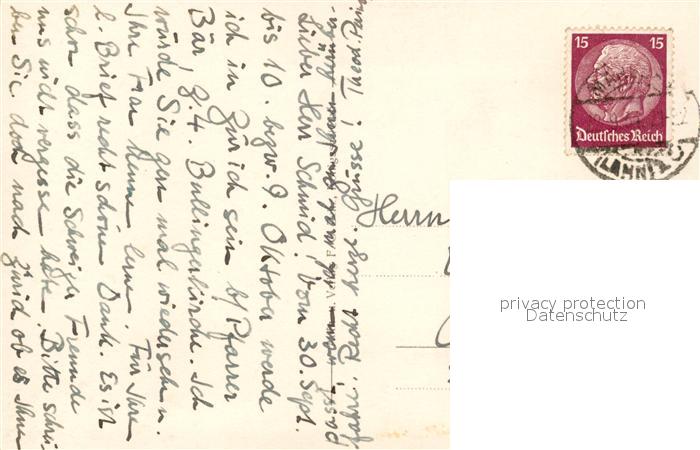 Lieber Herr Schmid! Vom 30. Sept.
bis 10. bezw. 9. Oktober werde
ich in Zürich sein b/ Pfarrer
Bär, Z. 4. Bullingerkirche. Ich
würde Sie gern mal wiedersehen u.
Ihre Frau kennen lernen. Für Ihren
l. Brief recht schönen Dank. Es ist
schön dass die Schweizer Freunde
uns nicht vergessen haben. Bitte schrei-
ben Sie doch nach Zürich ob es Ihnen
Grüsse! Theod.
Recht herzl.
Herrn
15 15
Deutsches Reich
(LAHN)
privacy protection
Datenschutz